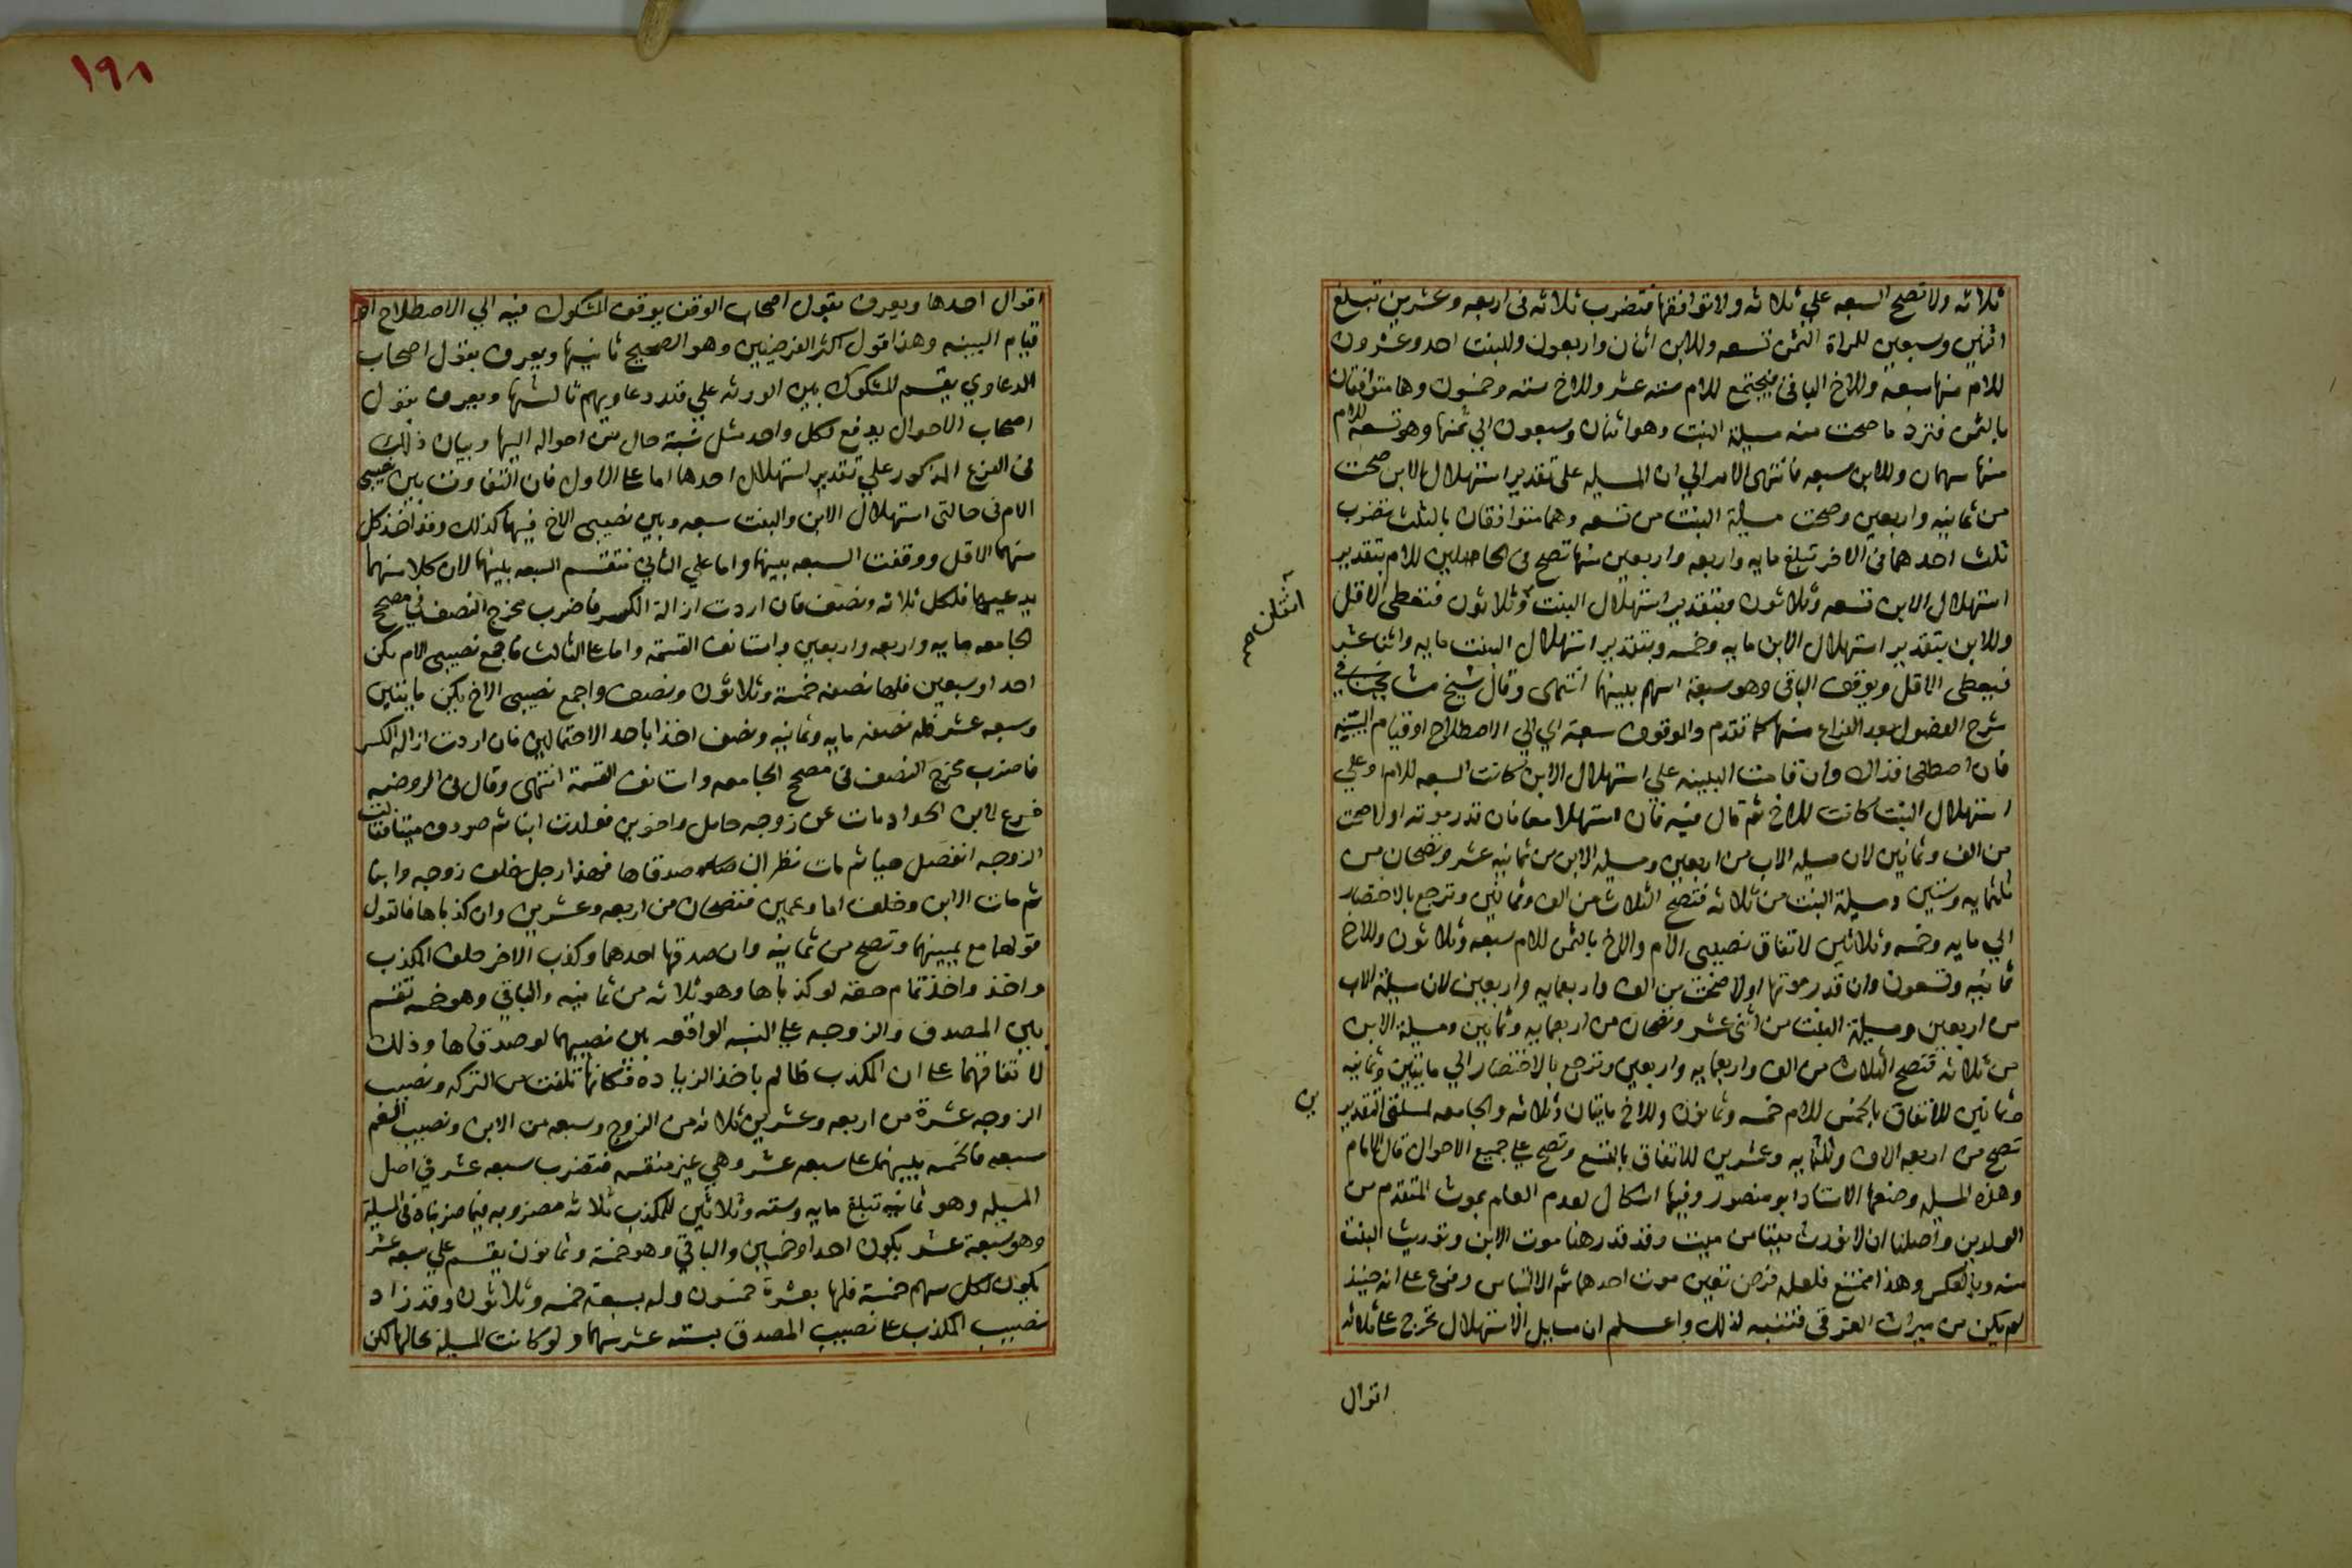 ثلاثه ولا تصح السبعه علي ثلاثه ولا توافقها فتضرب ثلاثه في اربعه وعشرين تبلغ
اثنين وسبعين للمراة الثمن تسعه وللابن اثنان واربعون وللبنت احد وعشرون
للام منها سبعة وللاخ الباقي فيجتمع للام سته عشر وللاخ سته وخمسون وهما متوافقان
بالثمن فترد ما صحت منه مسيلة البنت وهو اثنان وسبعون الي ثمنها وهو تسعه للام
منها سهمان وللابن سبعه فانتهى الامر الي ان المسيله على تقدير استهلال الابن صحت
من ثمانيه واربعين وصحت مسيلة البنت من تسعه وهما متوافقان بالثلث فتضرب
ثلث احدهما في الاخر تبلغ مايه واربعه واربعين منها تصح في الحاصلين للام بتقدير
استهلال الابن تسعه وثلاثون وبتقدير استهلال البنت وثلاثون فتعطى الاقل
اثنان صح
وللابن بتقدير استهلال الابن مايه وخمسه وبتقدير استهلال البنت مايه واثناعشر
فيعطى الاقل ويوقف الباقي وهو سبعة اسهم بينهما انتهى وقال شيخ مشايخنا في
شرح الفصول بعد الفراغ منها كما تقدم والموقوف سبعة اي الي الاصطلاح او قيام البينه
فان اصطلحا فذاك وان قامت البينه علي استهلال الابن كانت السبعه للام وعلي
استهلال البنت كانت للاخ ثم قال فيه فان استهلا معا فان قدر موته اولا صحت
من الف وثمانين لان مسيله الاب من اربعين ومسيله الابن من ثمانيه عشر وتصحان من
ثلثمايه وستين ومسيلة البنت من ثلاثه فتصح الثلاث من الف وثمانين وترجع بالاختصار
الي مايه وخمسه وثلاثين لاتفاق نصيبى الام والاخ بالثمن للام سبعه وثلاثون وللاخ
ثمانيه وتسعون وان قدر موتها اولا صحت من الف واربعمايه واربعين لان مسيلة الاب
من اربعين ومسيلة البنت من اثني عشر وتصحان من اربعمايه وثمانين ومسيلة الابن
من ثلاثه فتصح الثلاث من الف واربعمايه واربعين وترجع بالاختصار الي مايتين وثمانيه
وثمانين للاتفاق بالخمس للام خمسه وثمانون وللاخ مايتان وثلاثه والجامعه لمسلتي التقدير
ين
تصح من اربعه الاف وثلثمايه وعشرين للاتفاق بالتسع وتصح علي جميع الاحوال قال الامام
وهذه المسيله وضعها الاستاد ابو منصور وفيها اشكال لعدم العلم بموت المتقدم من
الولدين واصلنا ان لا نورث ميتا من ميت وقد قدر هنا موت الابن وتوريث البنت
منه وبالعكس وهذا ممتنع فلعله فرض تعين موت احدهما ثم الالتباس وفرع على انه حينئذ
لم يكن من ميراث الغرقى فتنبه لذلك واعلم ان مسايل الاستهلال تخرج على ثلاثه
اقوال
١٩٨
اقوال احدها ويعرف بقول اصحاب الوقف يوقف المشكوك فيه الي الاصطلاح او
قيام البينه وهذا قول اكثر الفرضيين وهو الصحيح ثانيها ويعرف بقول اصحاب
الدعاوي يقسم المشكوك بين الورثه علي قدر دعاويهم ثالثها ويعرف بقول
اصحاب الاحوال يدفع لكل واحد مثل نسبة حال من احواله اليها وبيان ذلك
في الفرع المذكور علي تقدير استهلال احدها اما على الاول فان التفاوت بين نصيبى
الام في حالتي استهلال الابن والبنت سبعه وبين نصيبى الاخ فيهما كذلك وقد اخذ كل
منهما الاقل ووقفت السبعه بينهما واما علي الثاني فتقسم السبعه بينهما لان كلا منهما
يدعيها فلكل ثلاثه ونصف فان اردت ازالة الكسر فاضرب مخرج النصف في مصح
الجامعه مايه واربعه واربعين واستانف القسمة واما على الثالث فاجمع نصيبى الام يكن
احدا وسبعين فلها نصفه خمسة وثلاثون ونصف واجمع نصيبى الاخ يكن مايتين
وسبعه عشر فله نصفه مايه وثمانيه ونصف اخذا باحد الاحتمالين فان اردت ازاله الكسر
فاضرب مخرج النصف في مصح الجامعه واستانف القسمة انتهى وقال في الروضه
فرع لابن الحداد مات عن زوجه حامل واخوين فولدت ابنا ثم صودف ميتا فقالت
الزوجه انفصل حيا ثم مات نظر ان صدقاها فهذا رجل خلف زوجه وابنا
ثم مات الابن وخلف اما وعمين فتصحان من اربعه وعشرين وان كذباها فالقول
قولهما مع يمينهما وتصح من ثمانيه وان صدقها احدهما وكذب الاخر حلف المكذب
واخذ تمام حقه لو كذباها وهو ثلاثه من ثمانيه والباقي وهو خمسه تقسم
بين المصدق والزوجه على النسبه الواقعه بين نصيبهما لو صدقاها وذلك
لاتفاقهما على ان المكذب ظالم باخذ الزيادة فكانها تلفت من التركه ونصيب
الزوجه عشرة من اربعه وعشرين ثلاثه من الزوج وسبعه من الابن ونصيب العم
سبعه فالخمسه بينهما على سبعه عشر وهي غير منقسمه فتضرب سبعه عشر في اصل
المسيله وهو ثمانيه تبلغ مايه وسته وثلاثين للمكذب ثلاثه مضروبه فيما ضربناه في المسيلة
وهو سبعة عشر يكون احدا وخمسين والباقي وهو خمسة وثمانون يقسم علي سبعه عشر
يكون لكل سهم خمسة فلها بعشرة خمسون وله بسبعة خمسه وثلاثون وقد زاد
نصيب المكذب على نصيب المصدق بسته عشر سهما ولو كانت المسيلة بحالها لكن